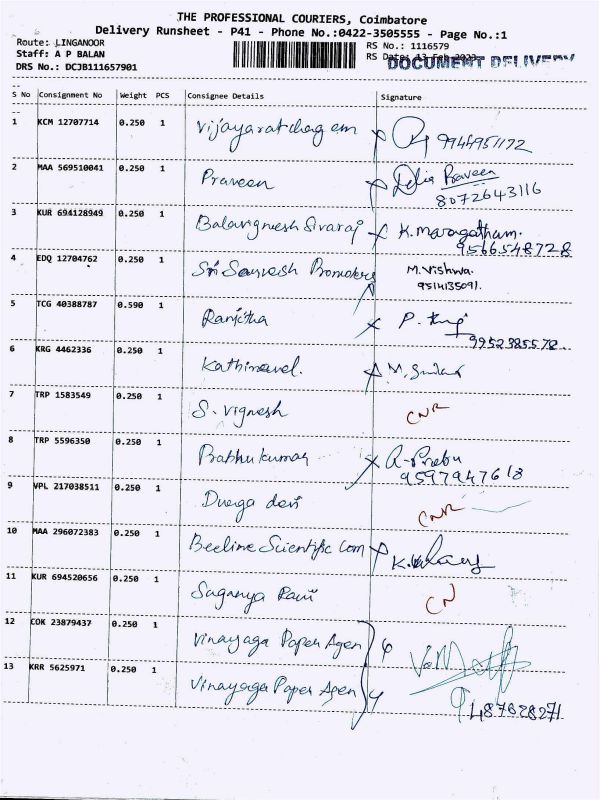 THE PROFESSIONAL COURIERS, Coimbatore
Delivery Runsheet - P41 - Phone No.:0422-3505555 - Page No.:1
Route: LINGANOOR
RS No.: 1116579
Staff: A P BALAN
RS Date: 13 Feb
DOCUMENT DELIVERY
DRS No.: DCJB111657901
S No Consignment No Weight PCS Consignee Details Signature
1 KCM 12707714 0.250 1 9944951172
2 MAA 569510041 0.250 1 Praveen Praveen
8072643116
3 KUR 694128949 0.250 1 Balavignesh Sivaraj K. Maragatham.
9566548728
4 EDQ 12704762 0.250 1 Sri Promoters M. Vishwa.
9514135091.
5 TCG 40388787 0.590 1 Ranjitha P.
9952385578
6 KRG 4462336 0.250 1 Kathiravel. M.
7 TRP 1583549 0.250 1 S. Vignesh CNR
8 TRP 5596350 0.250 1 Prabhu kumar A. Prabu
9597947618
9 VPL 217038511 0.250 1 Durga devi CNR
10 MAA 296072383 0.250 1 Beeline Scientific Com K.
11 KUR 694520656 0.250 1 CN
12 COK 23879437 0.250 1 Vinayaga Paper Agen
13 KRR 5625971 0.250 1 Vinayaga Paper Agen
9487828271